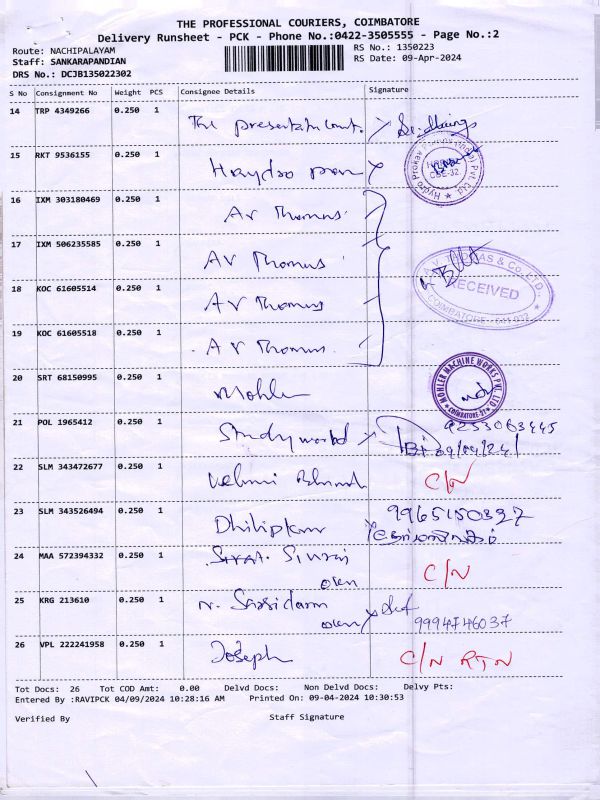 THE PROFESSIONAL COURIERS, COIMBATORE
Delivery Runsheet - PCK - Phone No.:0422-3505555 - Page No.:2
Route: NACHIPALAYAM
RS No.: 1350223
Staff: SANKARAPANDIAN
RS Date: 09-Apr-2024
DRS No.: DCJB135022302
S No Consignment No Weight PCS Consignee Details Signature
14 TRP 4349266 0.250 1 The
15 RKT 9536155 0.250 1
16 IXM 303180469 0.250 1 AV Thomas
17 IXM 506235585 0.250 1 AV Thomas
A.V. THOMAS & Co. LTD.,
RECEIVED
18 KOC 61605514 0.250 1 AV Thomas
19 KOC 61605518 0.250 1 AV Thomas
MOHLER MACHINE WORKS PVT. LTD
20 SRT 68150995 0.250 1 Mohler
21 POL 1965412 0.250 1 Study world
09/04/24
22 SLM 343472677 0.250 1 C/N
23 SLM 343526494 0.250 1 9965150327
24 MAA 572394332 0.250 1 C/N
25 KRG 213610 0.250 1
9994746037
26 VPL 222241958 0.250 1 Joseph C/N RTN
Tot Docs: 26 Tot COD Amt: 0.00 Delvd Docs: Non Delvd Docs: Delvy Pts:
Entered By :RAVIPCK 04/09/2024 10:28:16 AM Printed On: 09-04-2024 10:30:53
Verified By Staff Signature